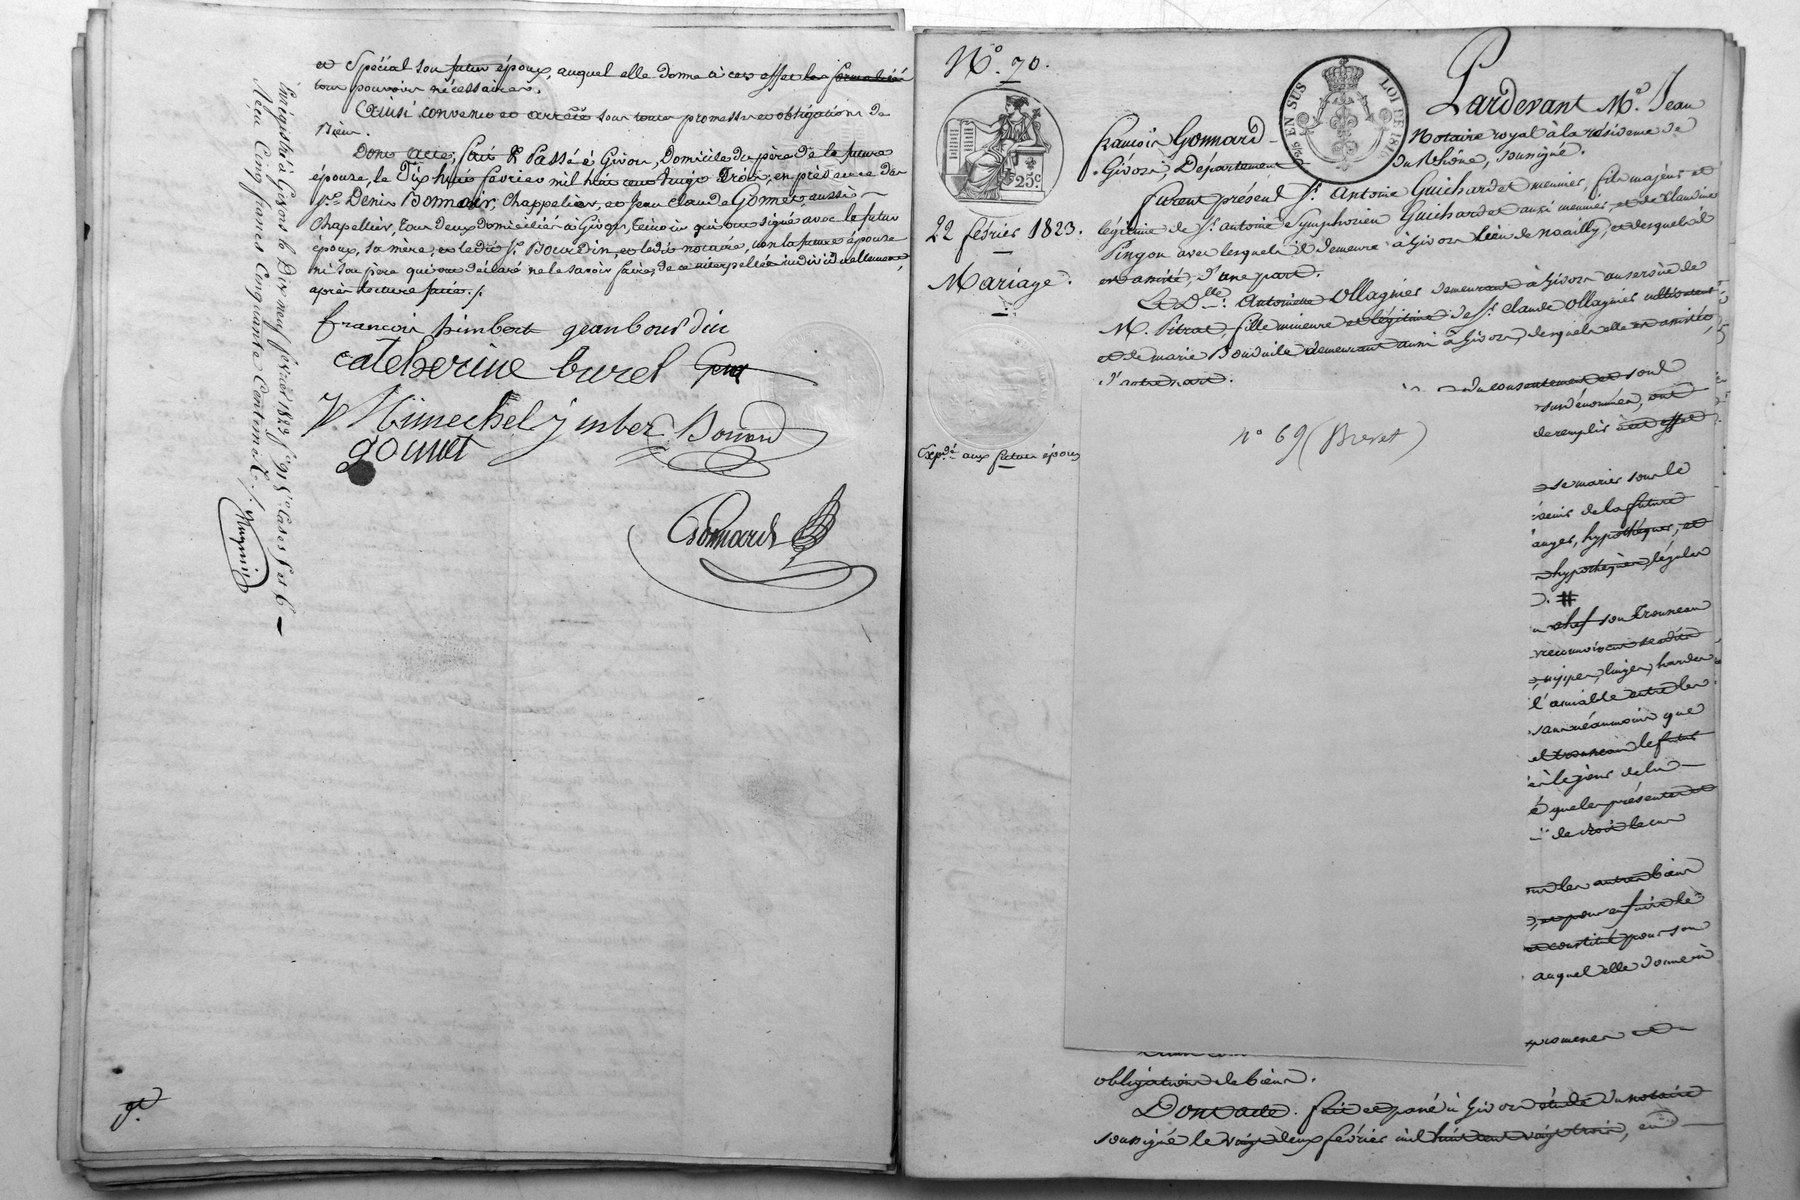 et Spécial son futur époux, auquel elle donne à cet effet les
tous pouvoirs nécessaires.
Ainsi convenu et arrêté sous toutes promesses et obligations de
Biens.
Dont acte, fait & Passé à Givors, Domicile du père de la future
épouse, le Dix huit février mil huit cent vingt trois, en présence des
Srs Denis Bonnair, Chappelier, et Jean Claude Gomet, aussi
Chapellier, tous deux domiciliés à Givors, témoins qui ont signé avec le futur
époux, sa mère, et ledit Sr Bourdin, et ledit notaire, non la future épouse
ni son père qui ont déclaré ne le savoir faire, de ce interpellés individuellement,
après lecture faite ./.
francois himbert jean bourdin
catcherine burel
himechel jmber Bonard
gomet
Gonnard
Enregistré à Givors le Dix neuf février 1823 fo 91 Ro Cases 5 et 6
Reçu Cinq francs Cinquante Centimes
No. 70.
25c
EN SUS
LOI DE 1816
22 février 1823.
Mariage.
Expdé aux futurs époux
Pardevant Me. Jean
françois Gonnard Notaire royal à la résidence de
Givors, Département du Rhône, soussigné.
furent présent Sr. Antoine Guichardet meunier, fils majeur et
légitime de Sr. Antoine Symphorien Guichardet aussi meunier, et de Claudine
Pingon avec lesquels il demeure à Givors lieu de naailly, et desquels il
est assisté, d'une part.
Et Dlle. Antoinette Ollagnier demeurant à Givors au service de
M. Pitrat, fille mineure et légitime de Sr. Claude Ollagnier cultivateur
et de marie demeurant aussi à Givors, desquels elle est assistée,
d'autre part.
du consentement et sous
susdénommés, ont
de remplir à cet effet
no 69 (Brevet)
se marier sous le
de la future
hypothèques, et
hypothèques légales
. #
chef son trousseau
reconnoissent
nipes, linges, hardes
l'amiable entre les
sans néanmoins que
et trousseau le futur
le jour de la
que les présentes
de
sur les autres biens
et pour en faire le
et constitué pour son
auquel elle donne à
promesses et
obligations de biens.
Dont acte. fait et passé à Givors étude du notaire
soussigné le vingt deux février mil huit cent vingt trois, en